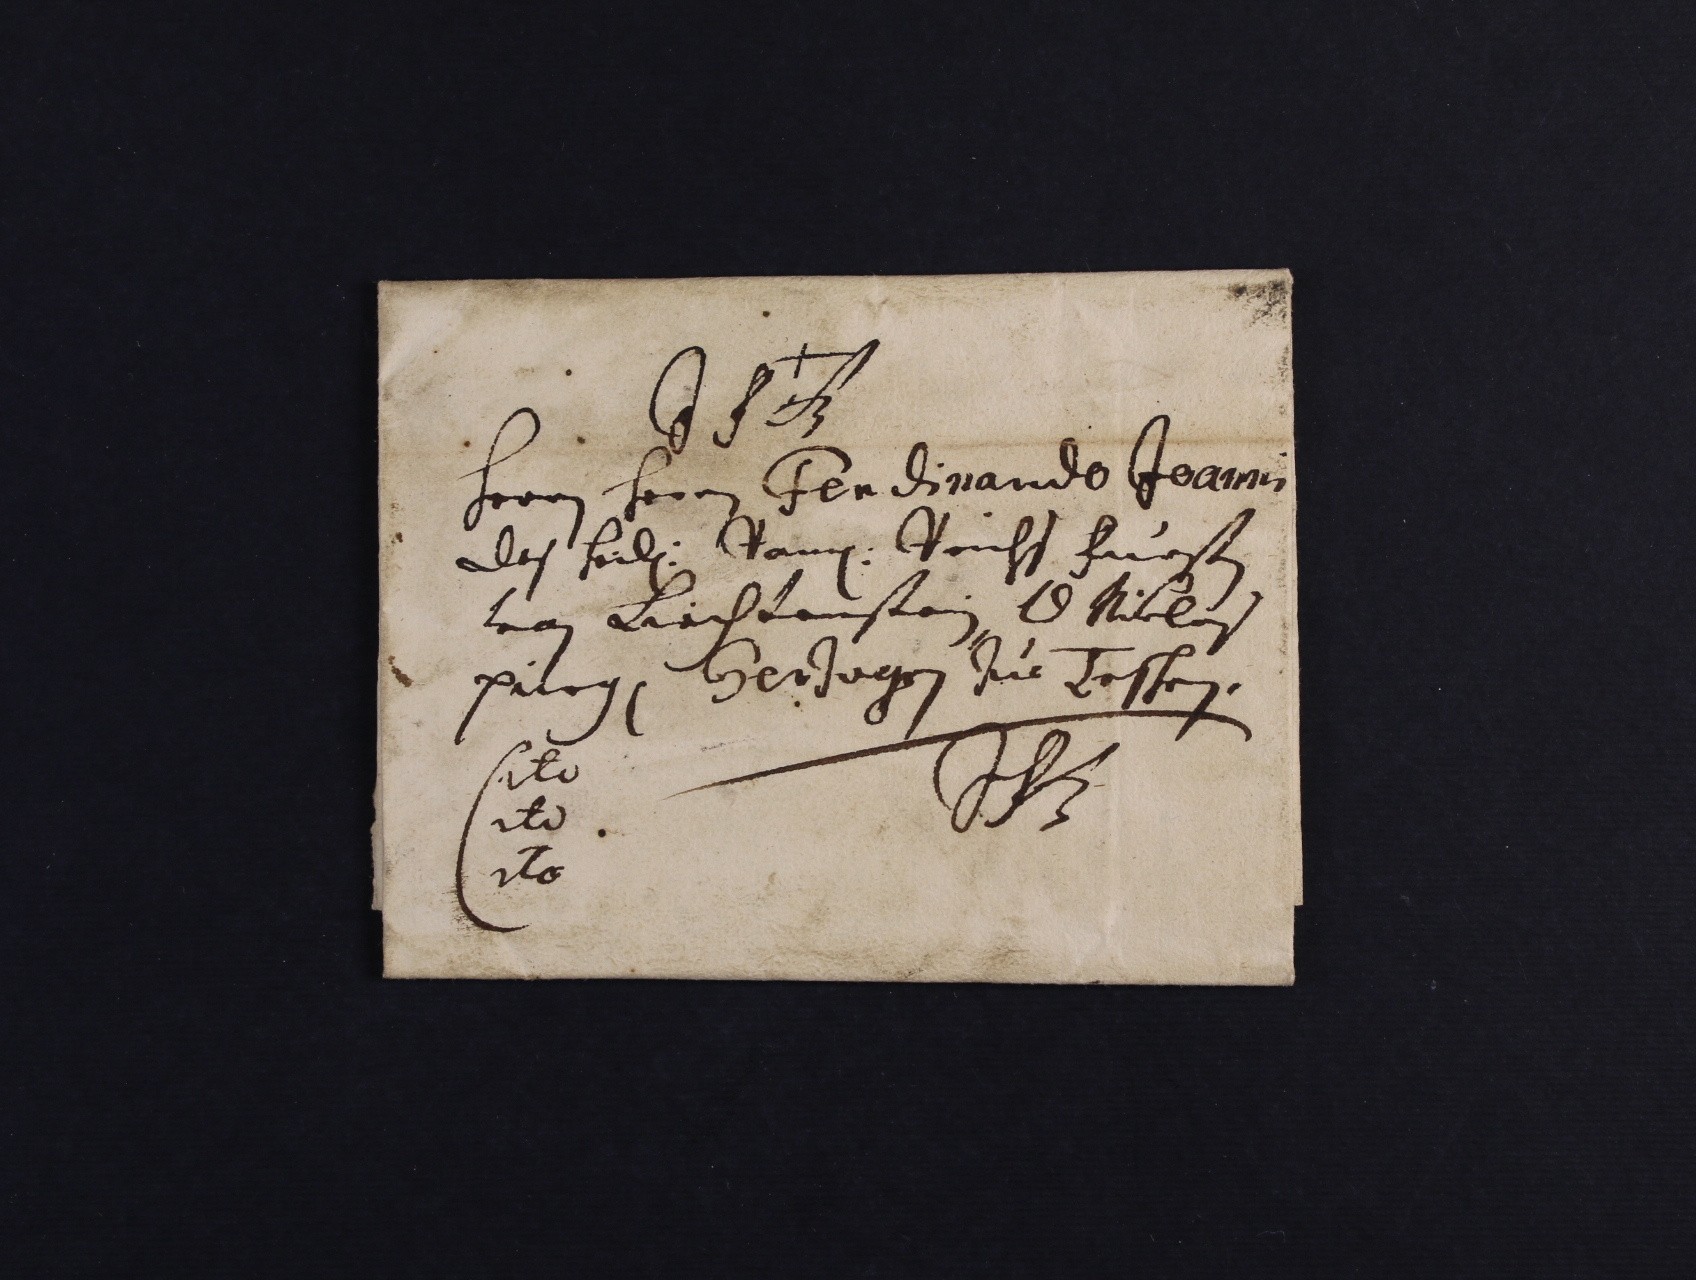 Herrn Herrn Ferdinando Joanni
des heil: Röm: Reichß Fürsten
von Liechtenstein, O Niclas
purg, Hertzogen zue Teschen.
Cito
ito
ito